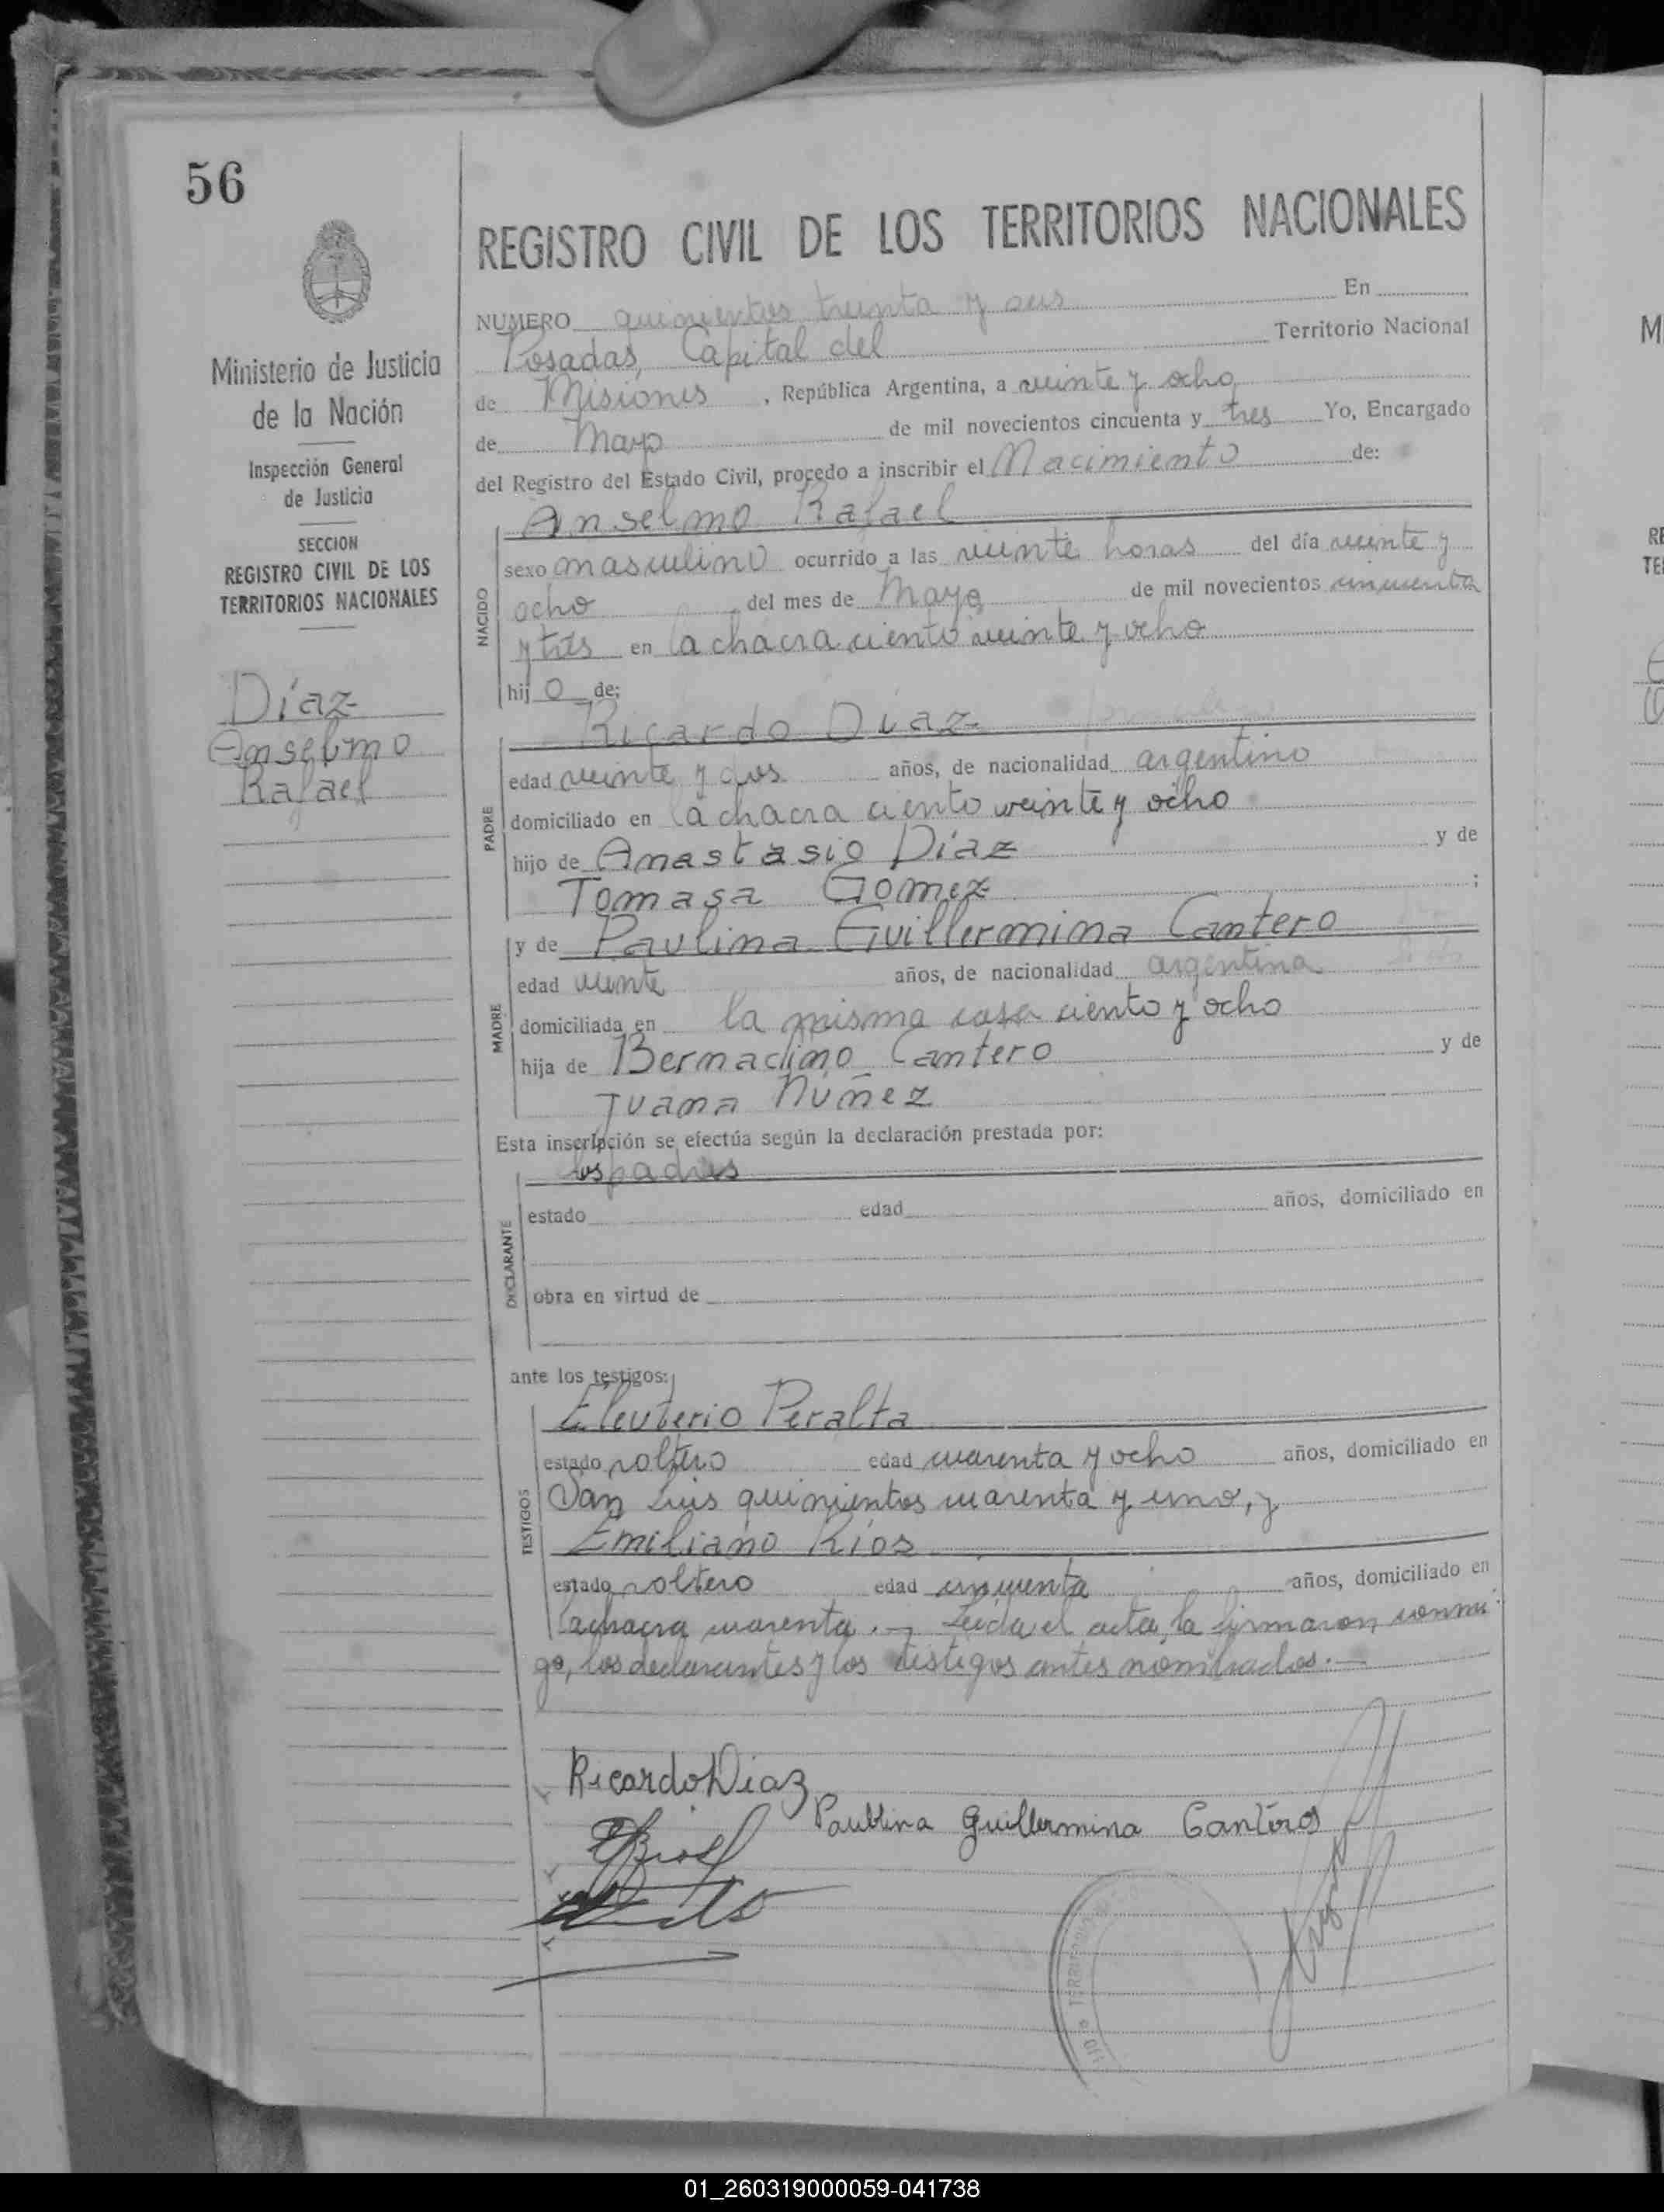 56
REGISTRO CIVIL DE LOS TERRITORIOS NACIONALES
Ministerio de Justicia
de la Nación
Inspección General
de Justicia
SECCION
REGISTRO CIVIL DE LOS
TERRITORIOS NACIONALES
Díaz
Anselmo
Rafael
NUMERO quinientos treinta y seis En
Posadas, Capital del Territorio Nacional
de Misiones, República Argentina, a veinte y ocho
de Mayo de mil novecientos cincuenta y tres Yo, Encargado
del Registro del Estado Civil, procedo a inscribir el Nacimiento de:
NACIDO
Anselmo Rafael
sexo masculino ocurrido a las veinte horas del día veinte y
ocho del mes de Mayo de mil novecientos cincuenta
y tres en la chacra ciento veinte y ocho
hijo de:
PADRE
Ricardo Díaz
edad veinte y dos años, de nacionalidad argentino
domiciliado en la chacra ciento veinte y ocho
hijo de Anastasio Díaz y de
Tomasa Gomez ;
MADRE
y de Paulina Guillermina Cantero
edad veinte años, de nacionalidad argentina
domiciliada en la misma casa ciento y ocho
hija de Bernadino Cantero y de
Juana Núñez
Esta inscripción se efectúa según la declaración prestada por:
DECLARANTE
los padres
estado edad años, domiciliado en
obra en virtud de
ante los testigos:
TESTIGOS
Eleuterio Peralta
estado soltero edad cuarenta y ocho años, domiciliado en
San Luis quinientos cuarenta y uno, y
Emiliano Ríos
estado soltero edad cincuenta años, domiciliado en
la chacra cuarenta.— Leida el acta, la firmaron conmi
go, los declarantes y los testigos antes nombrados.—
Ricardo Diaz
Paublina Guillermina Canteros
TERRITORIOS
01_260319000059-041738